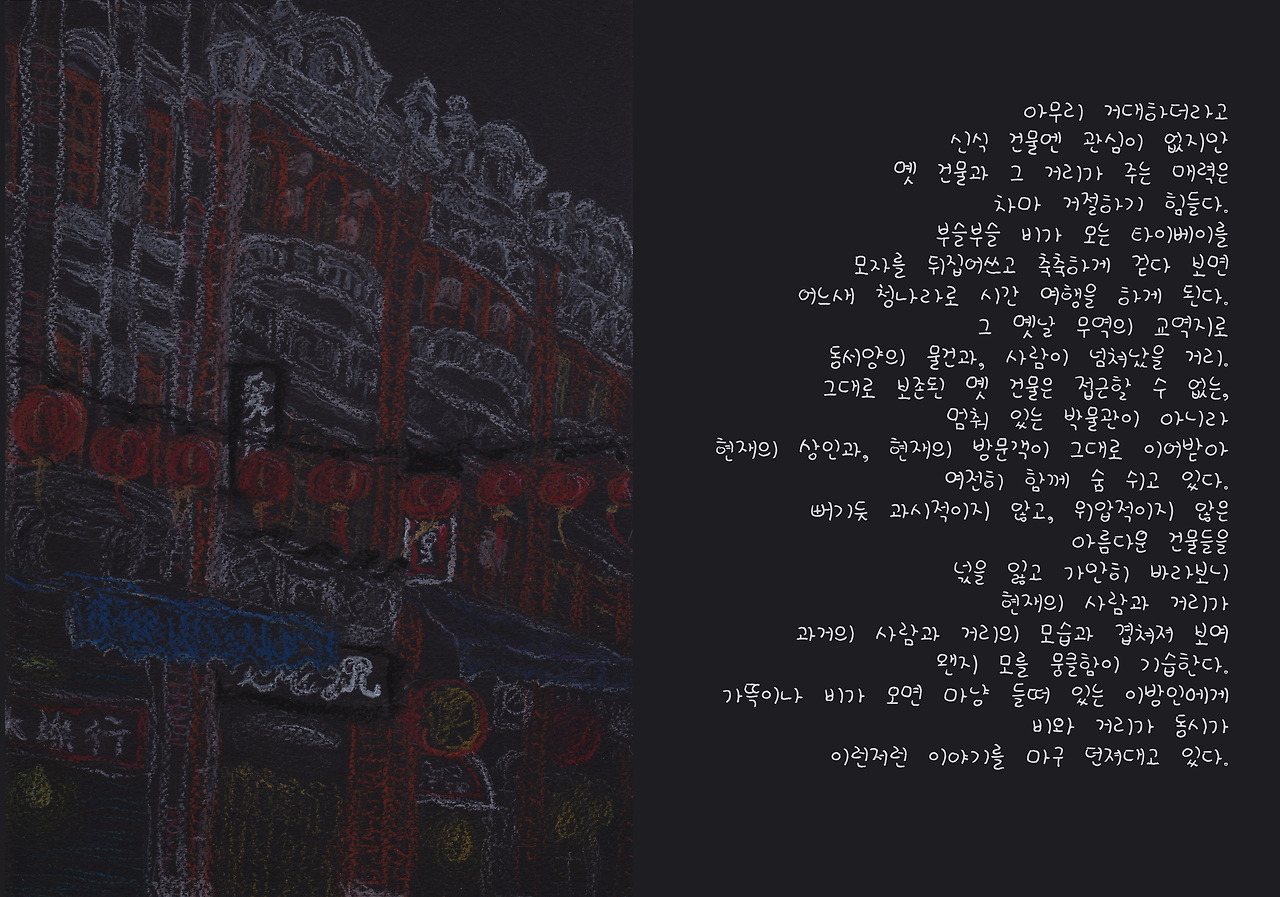 아무리 거대하더라고
신식 건물엔 관심이 없지만
옛 건물과 그 거리가 주는 매력은
차마 거절하기 힘들다.
부슬부슬 비가 오는 타이베이를
모자를 뒤집어쓰고 축축하게 걷다 보면
어느새 청나라로 시간 여행을 하게 된다.
그 옛날 무역의 교역지로
동서양의 물건과, 사람이 넘쳐났을 거리.
그대로 보존된 옛 건물은 접근할 수 없는,
멈춰 있는 박물관이 아니라
현재의 상인과, 현재의 방문객이 그대로 이어받아
여전히 함께 숨 쉬고 있다.
뻐기듯 과시적이지 않고, 위압적이지 않은
아름다운 건물들을
넋을 잃고 가만히 바라보니
현재의 사람과 거리가
과거의 사람과 거리의 모습과 겹쳐져 보여
왠지 모를 뭉클함이 기습한다.
가뜩이나 비가 오면 마냥 들떠 있는 이방인에게
비와 거리가 동시가
이런저런 이야기를 마구 던져대고 있다.
行